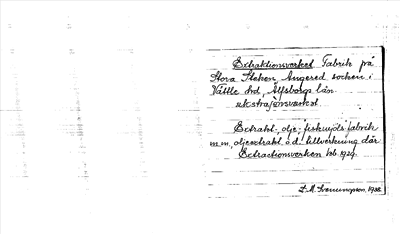 Extraktionsverket Fabrik på
Stora Steken, Angered socken i
Vättle hd, Älfsborgs län.
ekstra/onsvarkat.
Extrakt-, olje-, fiskmjölsfabrik
m.m., oljeextrakt o.d. tillverkning där
Extractionsverken bb. 1929.
1938.